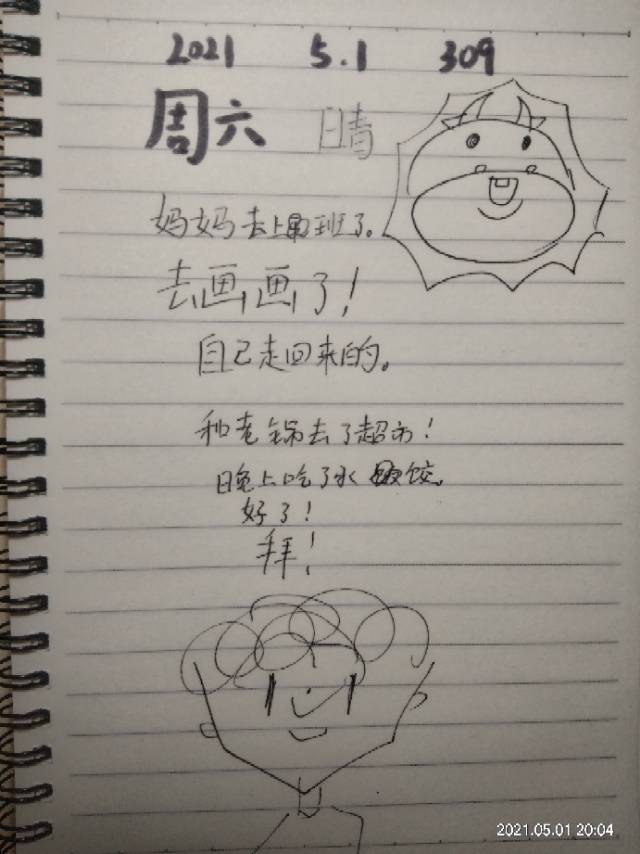 2021 5.1 309
周六 晴
妈妈去上班了。
去画画了！
自己走回来的。
和老锅去了超市！
晚上吃了水饺。
好了！
拜！
2021.05.01 20:04